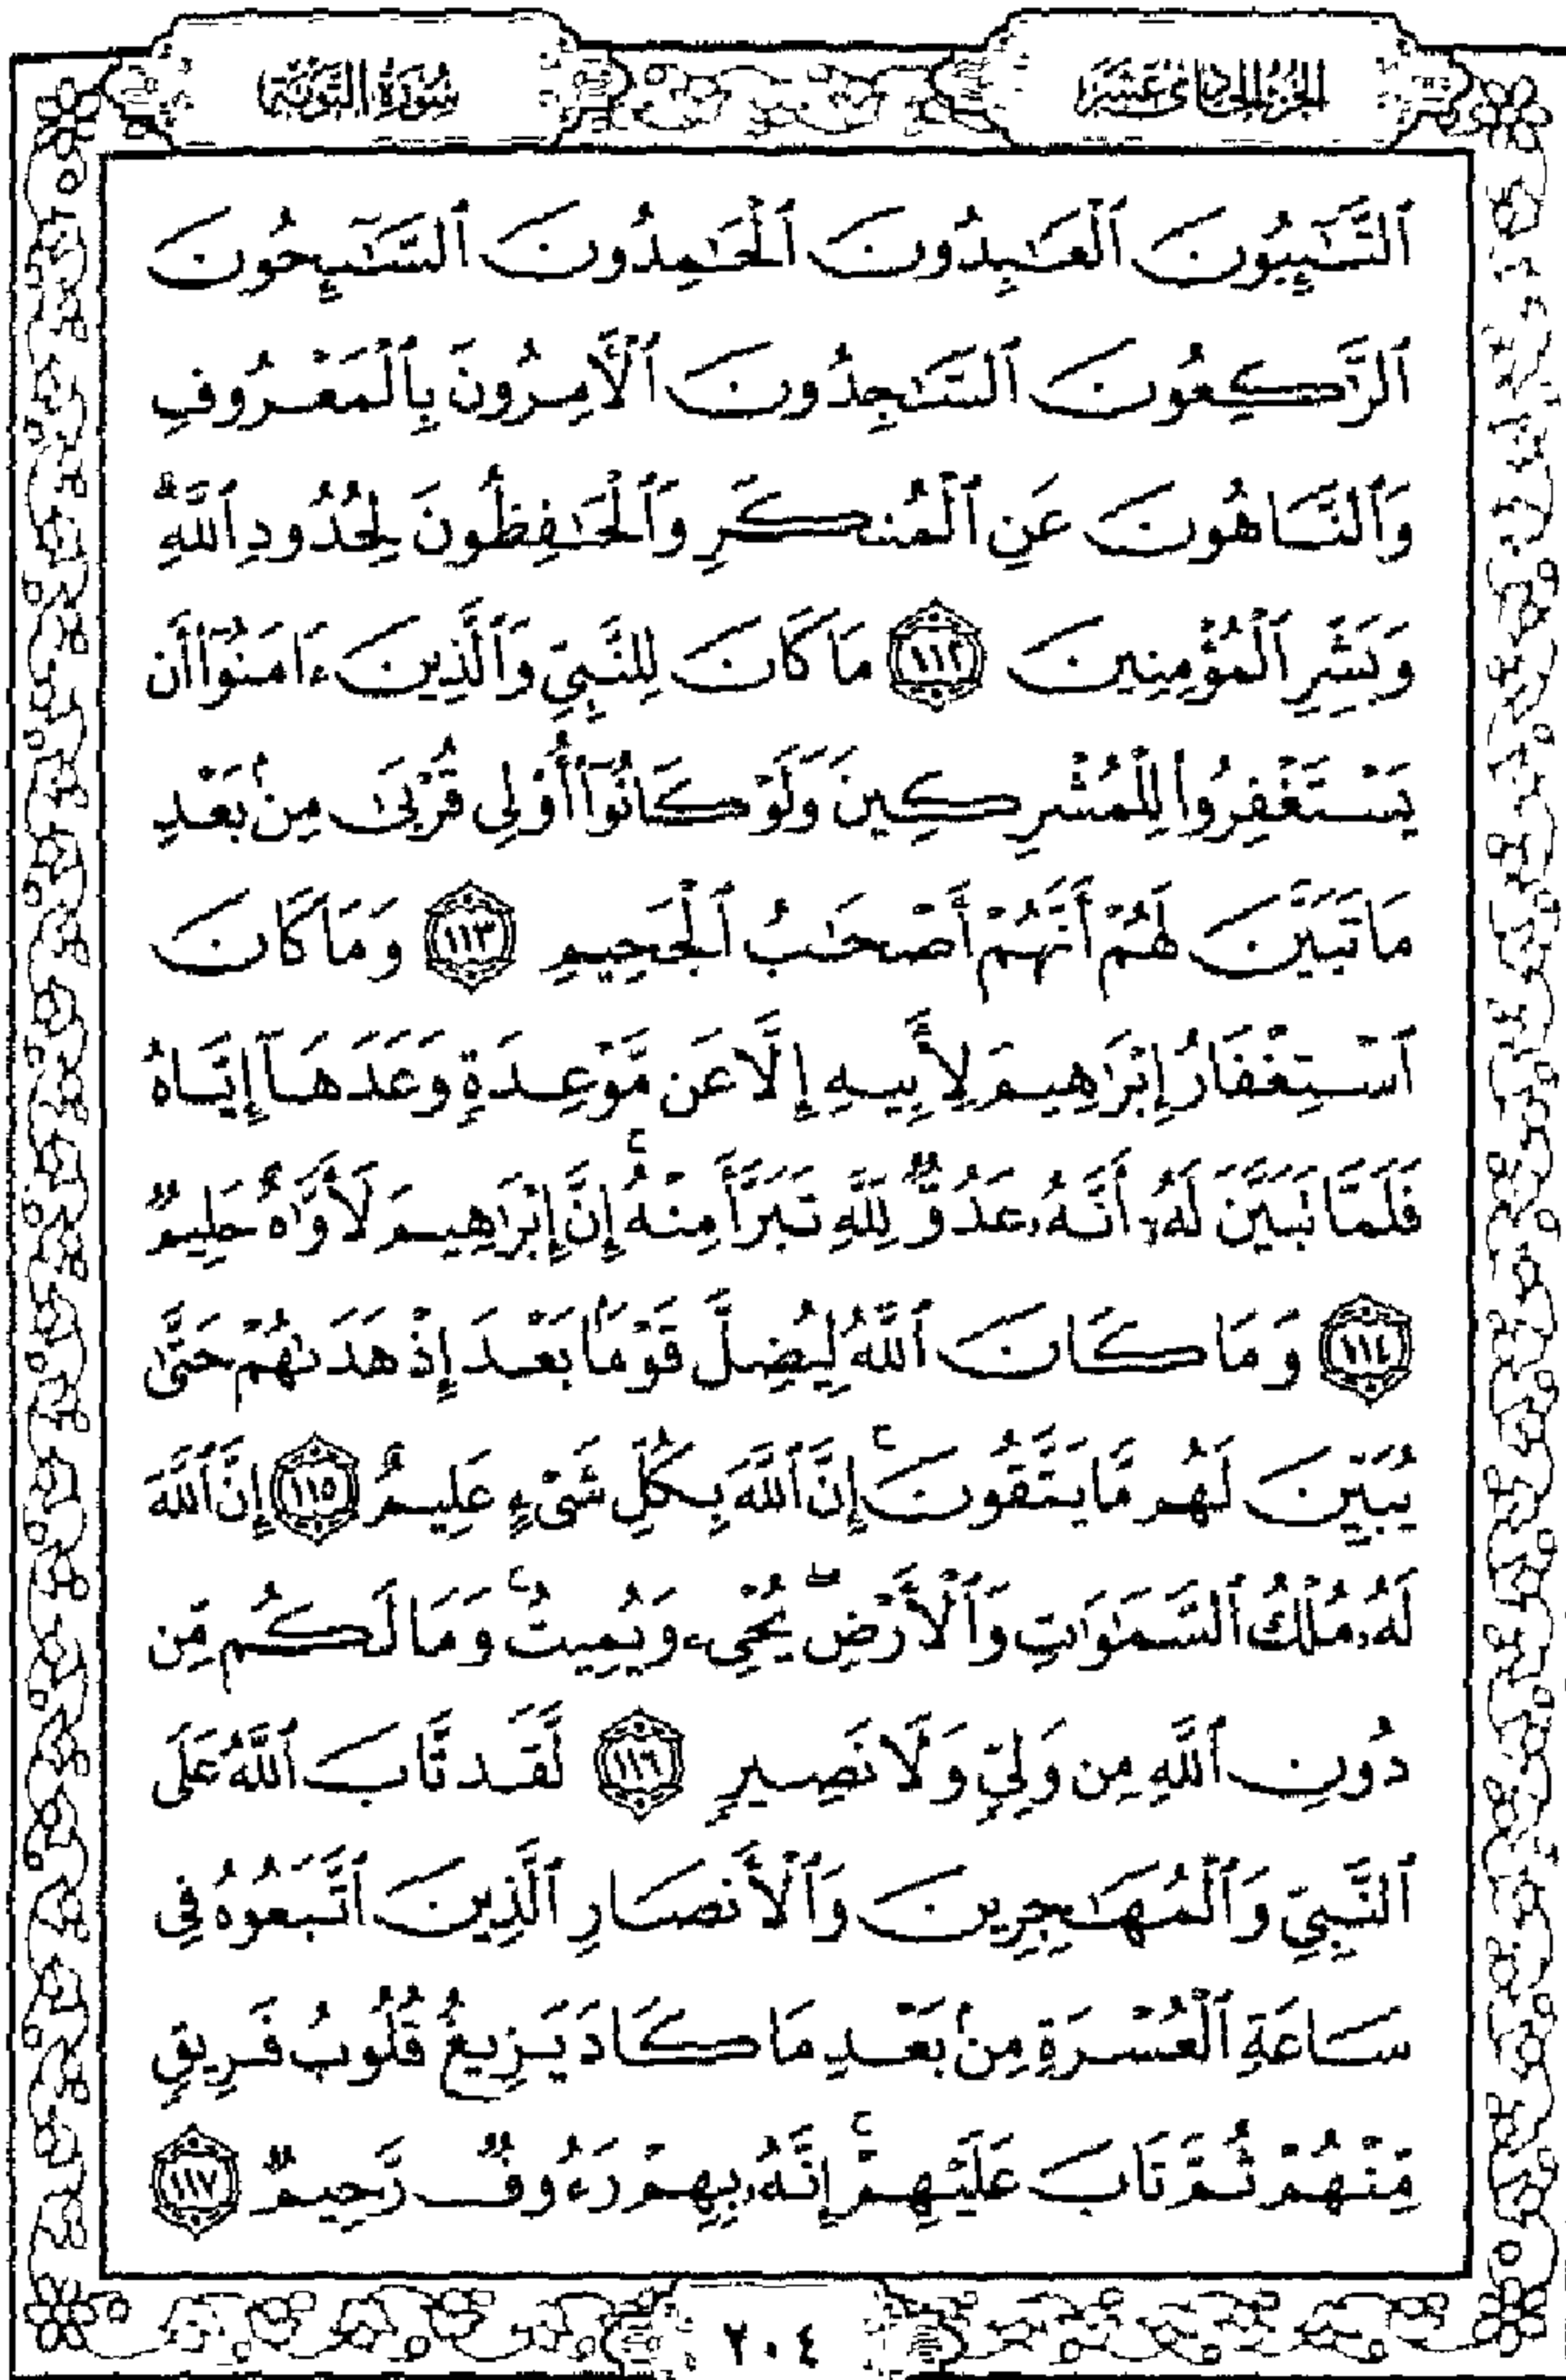 الجزء الحادي عشر
سورة التوبة
ٱلتَّٰٓئِبُونَ ٱلْعَٰبِدُونَ ٱلْحَٰمِدُونَ ٱلسَّٰٓئِحُونَ
ٱلرَّٰكِعُونَ ٱلسَّٰجِدُونَ ٱلْءَامِرُونَ بِٱلْمَعْرُوفِ
وَٱلنَّاهُونَ عَنِ ٱلْمُنكَرِ وَٱلْحَٰفِظُونَ لِحُدُودِ ٱللَّهِ ۗ
وَبَشِّرِ ٱلْمُؤْمِنِينَ ١١٢ مَا كَانَ لِلنَّبِىِّ وَٱلَّذِينَ ءَامَنُوٓا۟ أَن
يَسْتَغْفِرُوا۟ لِلْمُشْرِكِينَ وَلَوْ كَانُوٓا۟ أُو۟لِى قُرْبَىٰ مِنۢ بَعْدِ
مَا تَبَيَّنَ لَهُمْ أَنَّهُمْ أَصْحَٰبُ ٱلْجَحِيمِ ١١٣ وَمَا كَانَ
ٱسْتِغْفَارُ إِبْرَٰهِيمَ لِأَبِيهِ إِلَّا عَن مَّوْعِدَةٍ وَعَدَهَآ إِيَّاهُ
فَلَمَّا تَبَيَّنَ لَهُۥٓ أَنَّهُۥ عَدُوٌّ لِّلَّهِ تَبَرَّأَ مِنْهُ ۚ إِنَّ إِبْرَٰهِيمَ لَأَوَّٰهٌ حَلِيمٌ
١١٤ وَمَا كَانَ ٱللَّهُ لِيُضِلَّ قَوْمًۢا بَعْدَ إِذْ هَدَىٰهُمْ حَتَّىٰ
يُبَيِّنَ لَهُم مَّا يَتَّقُونَ ۚ إِنَّ ٱللَّهَ بِكُلِّ شَىْءٍ عَلِيمٌ ١١٥ إِنَّ ٱللَّهَ
لَهُۥ مُلْكُ ٱلسَّمَٰوَٰتِ وَٱلْأَرْضِ ۖ يُحْىِۦ وَيُمِيتُ ۚ وَمَا لَكُم مِّن
دُونِ ٱللَّهِ مِن وَلِىٍّ وَلَا نَصِيرٍ ١١٦ لَّقَد تَّابَ ٱللَّهُ عَلَى
ٱلنَّبِىِّ وَٱلْمُهَٰجِرِينَ وَٱلْأَنصَارِ ٱلَّذِينَ ٱتَّبَعُوهُ فِى
سَاعَةِ ٱلْعُسْرَةِ مِنۢ بَعْدِ مَا كَادَ يَزِيغُ قُلُوبُ فَرِيقٍ
مِّنْهُمْ ثُمَّ تَابَ عَلَيْهِمْ ۚ إِنَّهُۥ بِهِمْ رَءُوفٌ رَّحِيمٌ ١١٧
٢٠٤